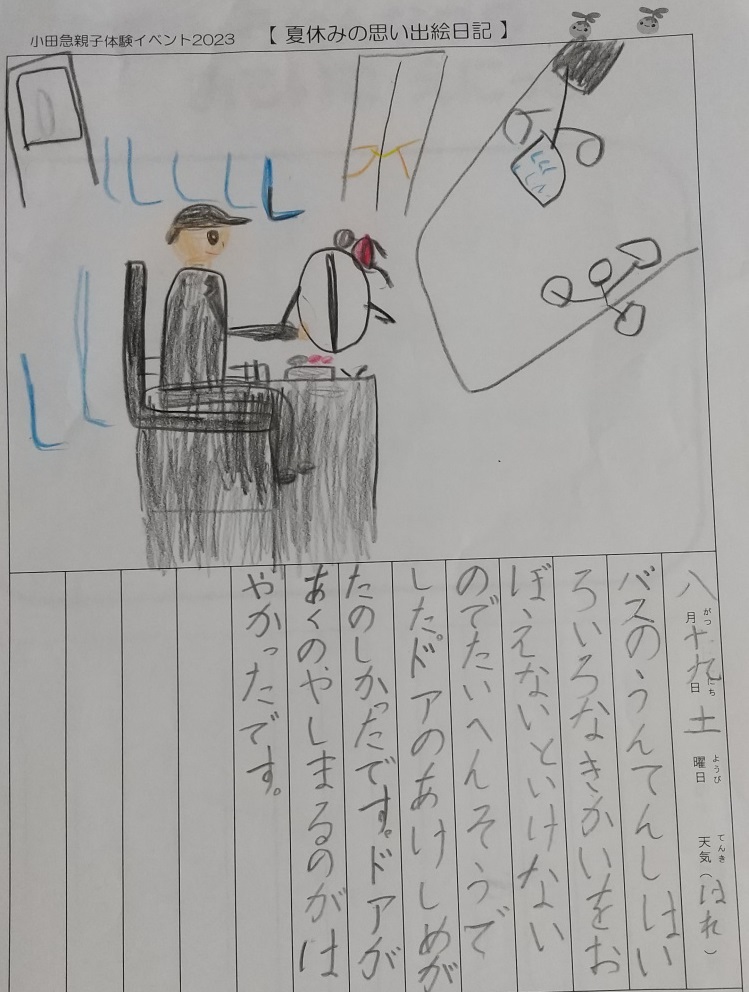 小田急親子体験イベント2023 【 夏休みの思い出絵日記 】
八月十九日 土曜日 天気(はれ)
がつ にち ようび てんき
バスのうんてんしはい
ろいろなきかいをお
ぼえないといけない
のでたいへんそうで
した。ドアのあけしめが
たのしかったです。ドアが
あくのやしまるのがは
やかったです。